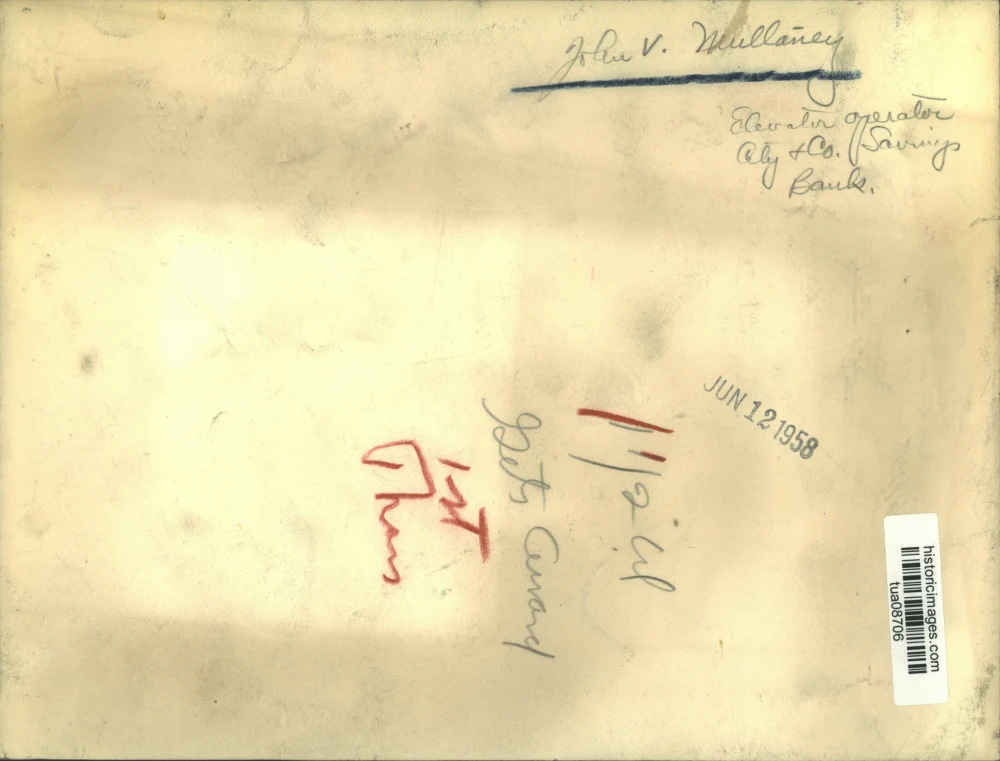 John V. Mullaney
Elevator operator
City & Co. Savings
Bank.
JUN 12 1958
Gets Award
1st
historicimages.com
tua08706